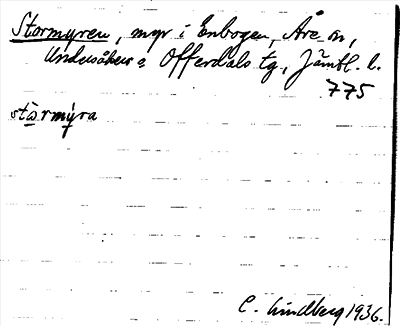 Stormyren, myr i Enbogen, Åre sn,
Undersåkers o Offerdals tg., Jämtl. l.
775
stωrmýra
C. Lindberg 1936.